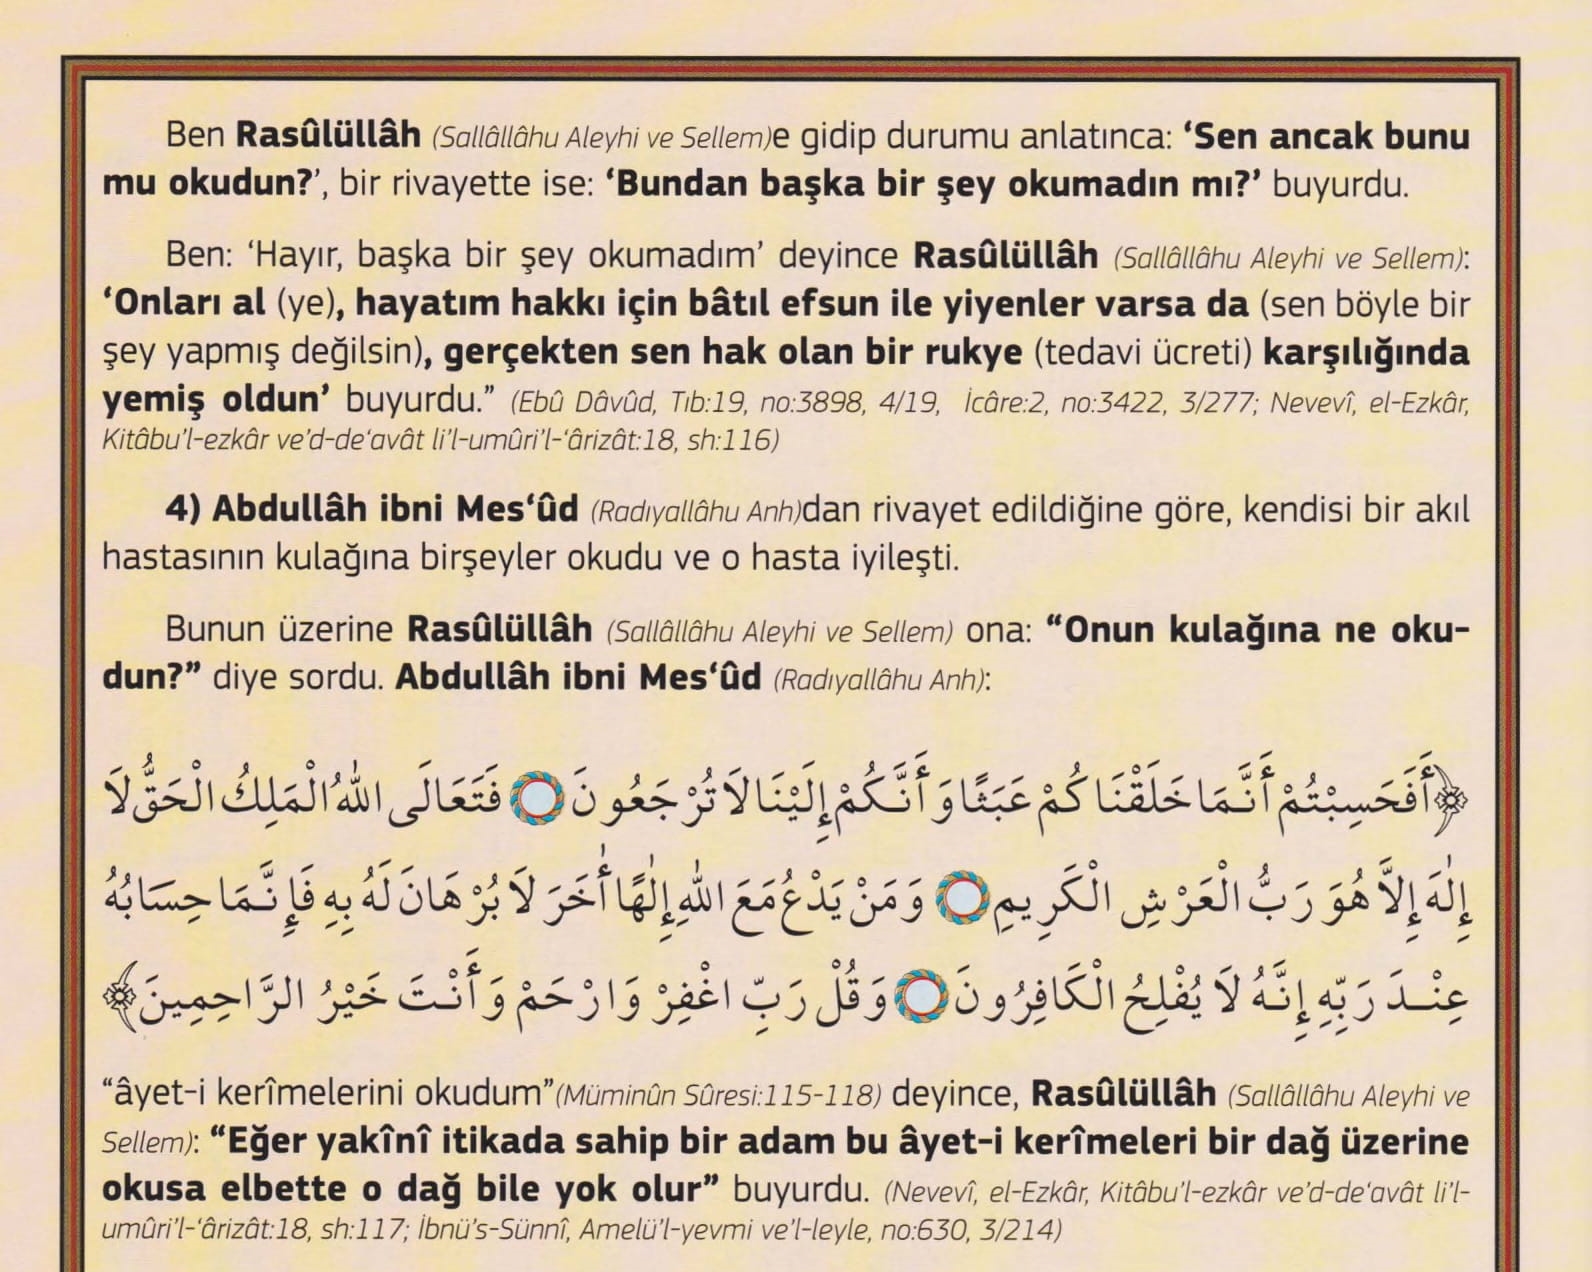 Ben Rasûlüllâh (Sallâllâhu Aleyhi ve Sellem)e gidip durumu anlatınca: ‘Sen ancak bunu
mu okudun?’, bir rivayette ise: ‘Bundan başka bir şey okumadın mı?’ buyurdu.
Ben: ‘Hayır, başka bir şey okumadım’ deyince Rasûlüllâh (Sallâllâhu Aleyhi ve Sellem):
‘Onları al (ye), hayatım hakkı için bâtıl efsun ile yiyenler varsa da (sen böyle bir
şey yapmış değilsin), gerçekten sen hak olan bir rukye (tedavi ücreti) karşılığında
yemiş oldun’ buyurdu.” (Ebû Dâvûd, Tıb:19, no:3898, 4/19, İcâre:2, no:3422, 3/277; Nevevî, el-Ezkâr,
Kitâbu’l-ezkâr ve’d-de‘avât li’l-umûri’l-‘ârizât:18, sh:116)
4) Abdullâh ibni Mes‘ûd (Radıyallâhu Anh)dan rivayet edildiğine göre, kendisi bir akıl
hastasının kulağına birşeyler okudu ve o hasta iyileşti.
Bunun üzerine Rasûlüllâh (Sallâllâhu Aleyhi ve Sellem) ona: “Onun kulağına ne oku-
dun?” diye sordu. Abdullâh ibni Mes‘ûd (Radıyallâhu Anh):
﴿أَفَحَسِبْتُمْ أَنَّمَا خَلَقْنَاكُمْ عَبَثًا وَأَنَّكُمْ إِلَيْنَا لَا تُرْجَعُونَ ۝ فَتَعَالَى اللّٰهُ الْمَلِكُ الْحَقُّ لَا
إِلٰهَ إِلَّا هُوَ رَبُّ الْعَرْشِ الْكَرِيمِ ۝ وَمَنْ يَدْعُ مَعَ اللّٰهِ إِلٰهًا أٰخَرَ لَا بُرْهَانَ لَهُ بِهِ فَإِنَّمَا حِسَابُهُ
عِنْدَ رَبِّهِ إِنَّهُ لَا يُفْلِحُ الْكَافِرُونَ ۝ وَقُلْ رَبِّ اغْفِرْ وَارْحَمْ وَأَنْتَ خَيْرُ الرَّاحِمِينَ﴾
“âyet-i kerîmelerini okudum”(Müminûn Sûresi:115-118) deyince, Rasûlüllâh (Sallâllâhu Aleyhi ve
Sellem): “Eğer yakînî itikada sahip bir adam bu âyet-i kerîmeleri bir dağ üzerine
okusa elbette o dağ bile yok olur” buyurdu. (Nevevî, el-Ezkâr, Kitâbu’l-ezkâr ve’d-de‘avât li’l-
umûri’l-‘ârizât:18, sh:117; İbnü’s-Sünnî, Amelü’l-yevmi ve’l-leyle, no:630, 3/214)